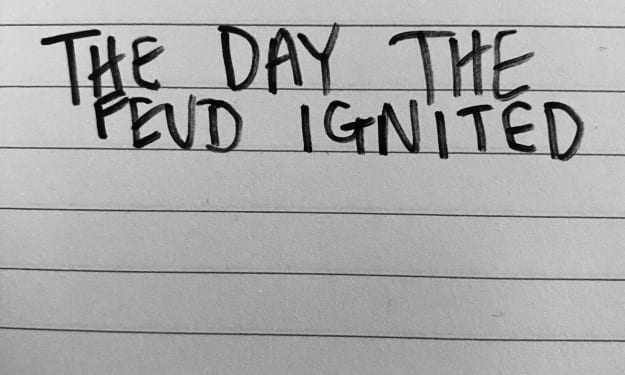 THE DAY THE
FEUD IGNITED